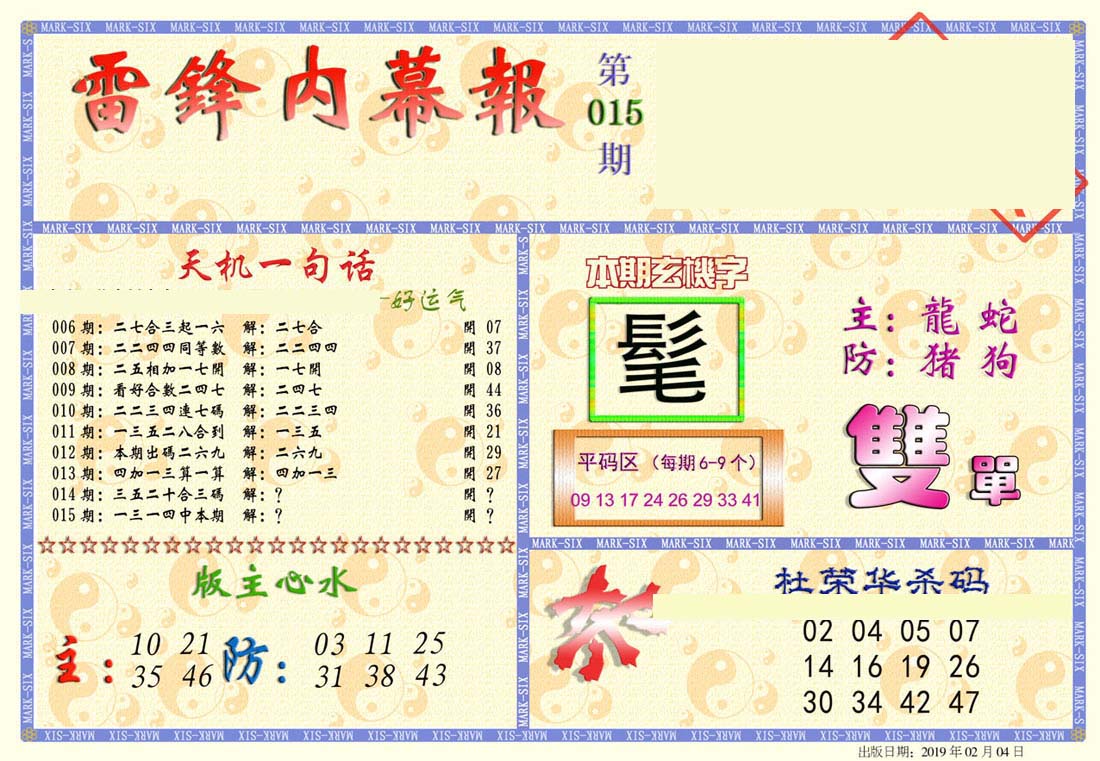 雷鋒内幕報
第
015
期
天机一句话
-好运气
006期：二七合三起一六 解：二七合 開 07
007期：二二四四同等數 解：二二四四 開 37
008期：二五相加一七開 解：一七開 開 08
009期：看好合數二四七 解：二四七 開 44
010期：二二三四連七碼 解：二二三四 開 36
011期：一三五二八合到 解：一三五 開 21
012期：本期出碼二六九 解：二六九 開 29
013期：四加一三算一算 解：四加一三 開 27
014期：三五二十合三碼 解：？ 開 ？
015期：一三一四中本期 解：？ 開 ？
本期玄機字
髦
平码区（每期6-9个）
09 13 17 24 26 29 33 41
主：龍 蛇
防：猪 狗
雙 單
版主心水
主：
10 21
35 46
防：
03 11 25
31 38 43
杀
杜荣华杀码
02 04 05 07
14 16 19 26
30 34 42 47
MARK-SIX
出版日期：2019年02月04日